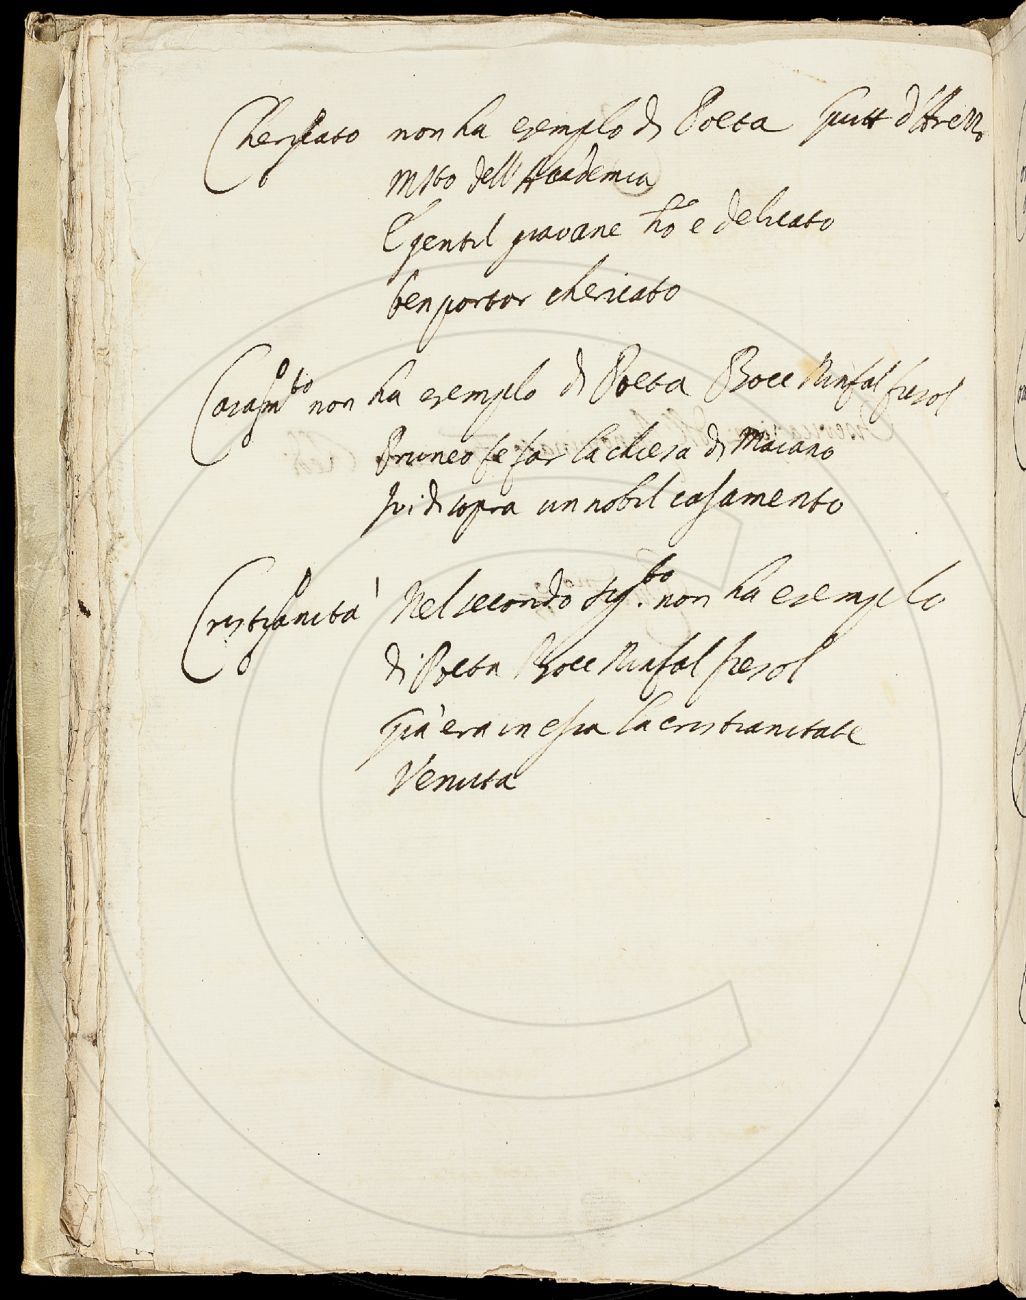 Chericato non ha esemplo di Poeta Guitt d'Arezzo
Msto dell'Academia
E gentil giovane ho e delicato
ben portar chericato
Casam.to non ha esemplo di Poeta Bocc Ninfal fiesol
Pruneo fe far la chiesa di Maiano
Ivi di sopra un nobil casamento
Cristianità Nel secondo sig.to non ha esemplo
di Poeta Bocc Ninfal fiesol
Già era in essa la cristianitate
Venuta